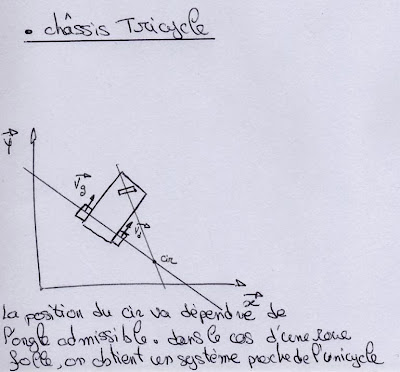 • châssis Tricycle
y
Vg
Vd
cir
x
La position du cir va dépendre de
l'angle admissible. dans le cas d'une roue
folle, on obtient un système proche de l'unicycle